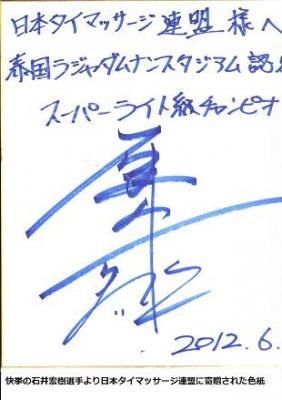 日本タイマッサージ連盟 様へ
泰国ラジャダムナンスタジアム認
スーパーライト級チャンピオ
2012.6.
快挙の石井宏樹選手より日本タイマッサージ連盟に寄贈された色紙